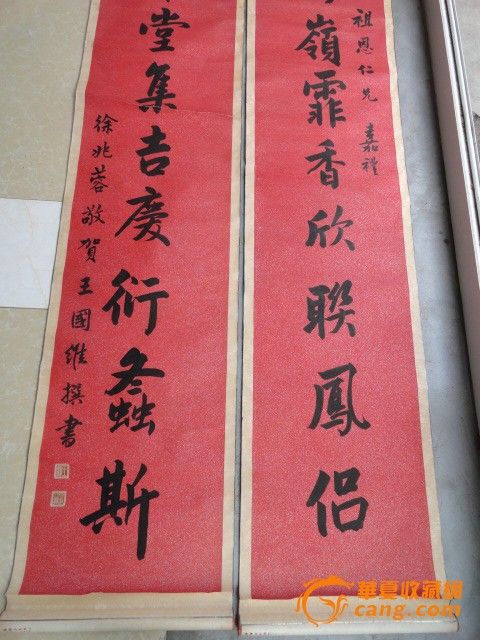 祖恩仁兄 嘉禮
嶺霏香欣聯鳳侶
堂集吉慶衍螽斯
徐兆蓉敬賀王國維撰書
華夏收藏網
cang.com